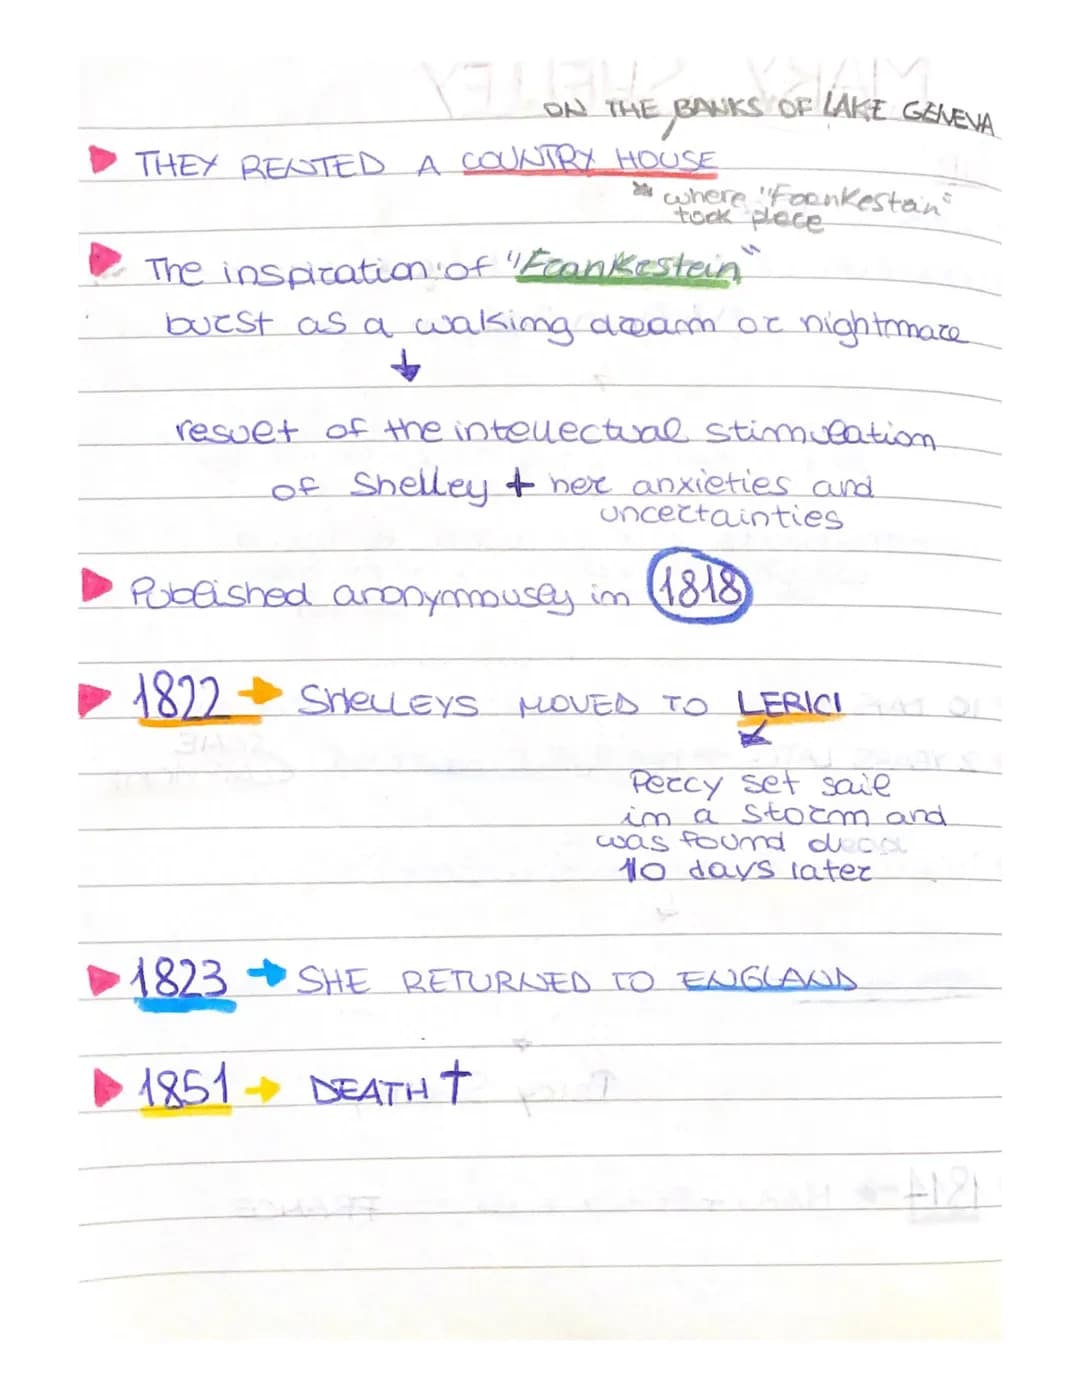 ON THE BANKS OF LAKE GENEVA
THEY RENTED A COUNTRY HOUSE
where "Frankestein"
took place
The inspiration of "Frankestein"
burst as a waking dream or nightmare
result of the intellectual stimulation
of Shelley + her anxieties and
uncertainties
Published anonymously in 1818
1822 → SHELLEYS MOVED TO LERICI
Percy set sail
in a storm and
was found dead
10 days later
1823 → SHE RETURNED TO ENGLAND
1851 → DEATH †